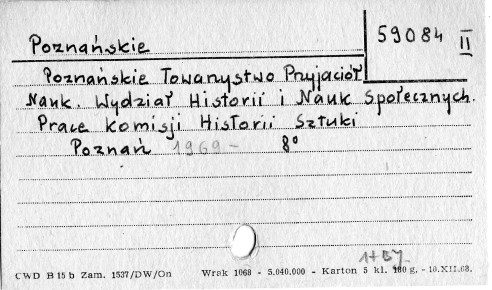 Poznańskie
59084 II
Poznańskie Towarzystwo Przyjaciół
Nauk. Wydział Historii i Nauk Społecznych.
Prace Komisji Historii Sztuki
Poznań 1969 - 8°
1+BJ
CWD B 15 b Zam. 1537/DW/On Wrak 1068 - 5.040.000 - Karton 5 kl. 180 g. - 10.XII.68.